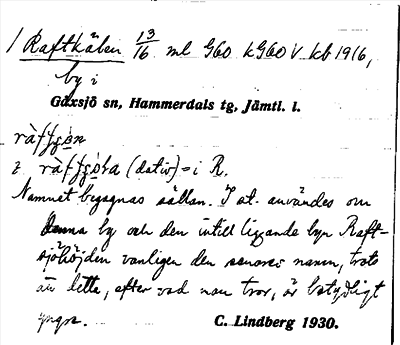 1 Raftkälen 13/16 ml G60 kG60 V kb 1916,
by i
Gåxsjö sn, Hammerdals tg, Jämtl. l.
ràffgən
i ràffgəta (dativ) = i R.
Namnet begagnas sällan. I st. användes om
denna by och den intill liggande byn Raft-
sjöhöjden vanligen den senares namn, trots
att detta, efter vad man tror, är betydligt
yngre.
C. Lindberg 1930.